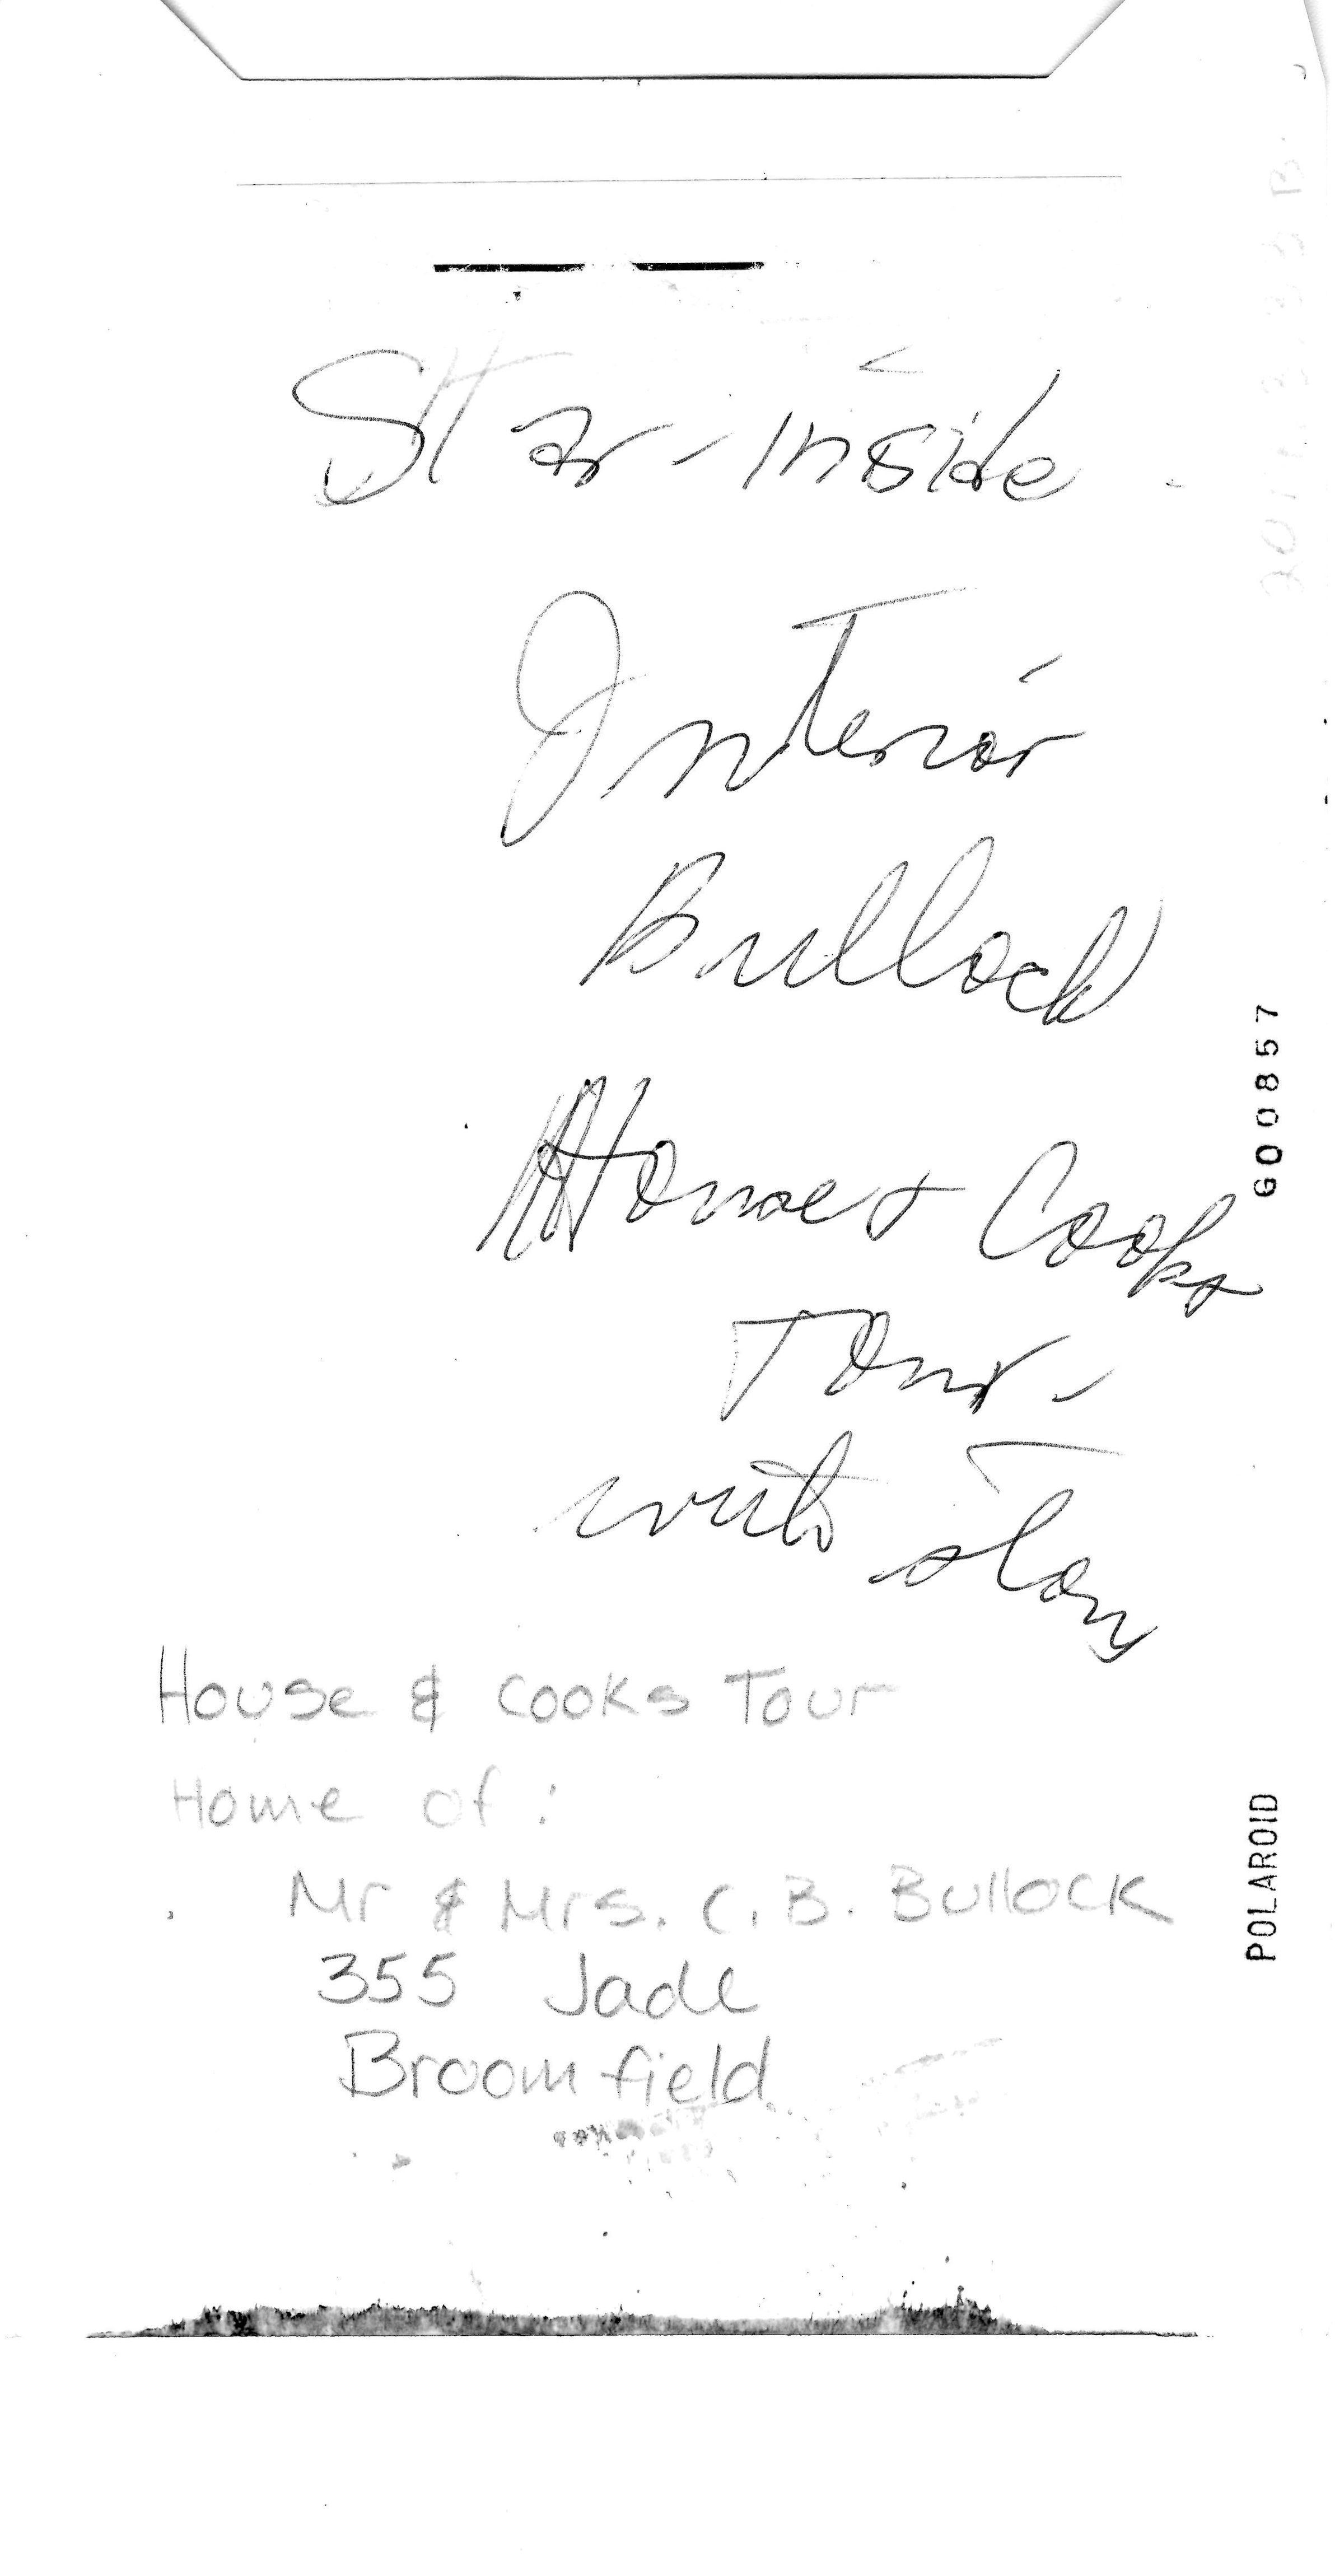 Star - inside
Interior
Bullock
House & Cooks
Tour -
with story
House & Cooks Tour
Home of :
Mr & Mrs. C. B. Bullock
355 Jade
Broomfield
G00857
POLAROID